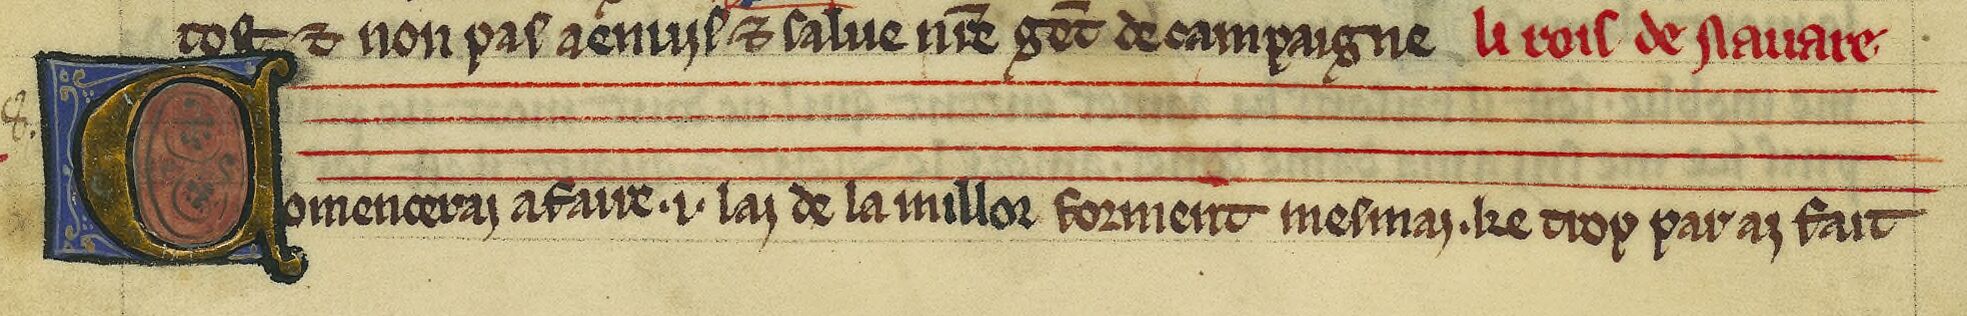 tost ⁊ non pas a enuijs ⁊ salue nr̄e gēt de campaigne li rois de nauare
Comencerai a faire .i. lai de la millor forment mesmai . ke trop par ai fait